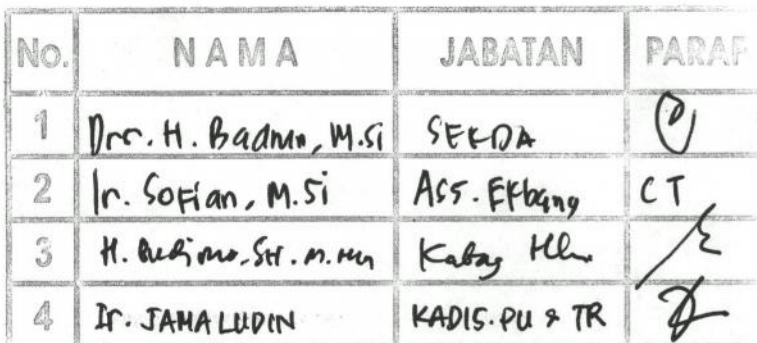 No. NAMA JABATAN PARAF
1 Drs. H. Badrun, M.Si SEKDA
2 Ir. Sofian, M.Si Ass. Ekbang CT
3 H. Kabag
4 Ir. JAMALUDIN KADIS. PU & TR